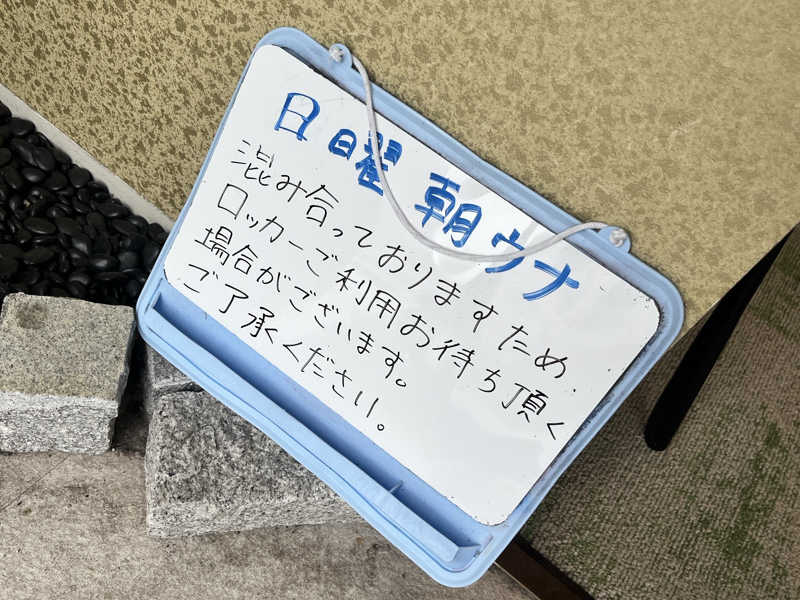 日曜朝ウナ
混み合っておりますため、
ロッカーご利用お待ち頂く
場合がございます。
ご了承ください。